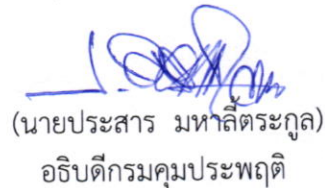 (นายประสาร มหาลี้ตระกูล)
อธิบดีกรมคุมประพฤติ